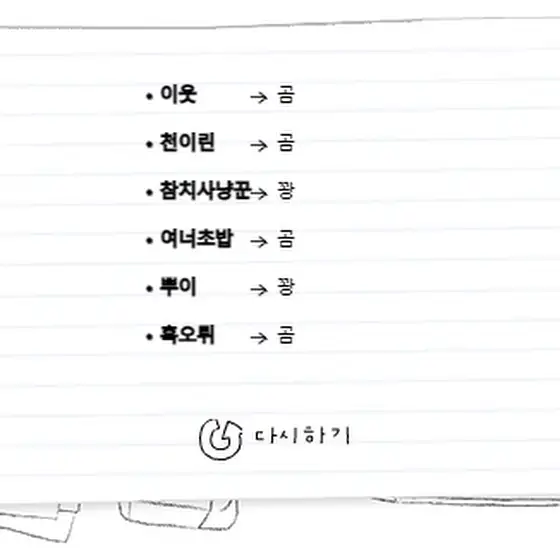 • 이웃 → 곰
• 천이린 → 곰
• 참치사냥꾼 → 꽝
• 여너초밥 → 곰
• 뿌이 → 꽝
• 흑오튀 → 곰
다시하기